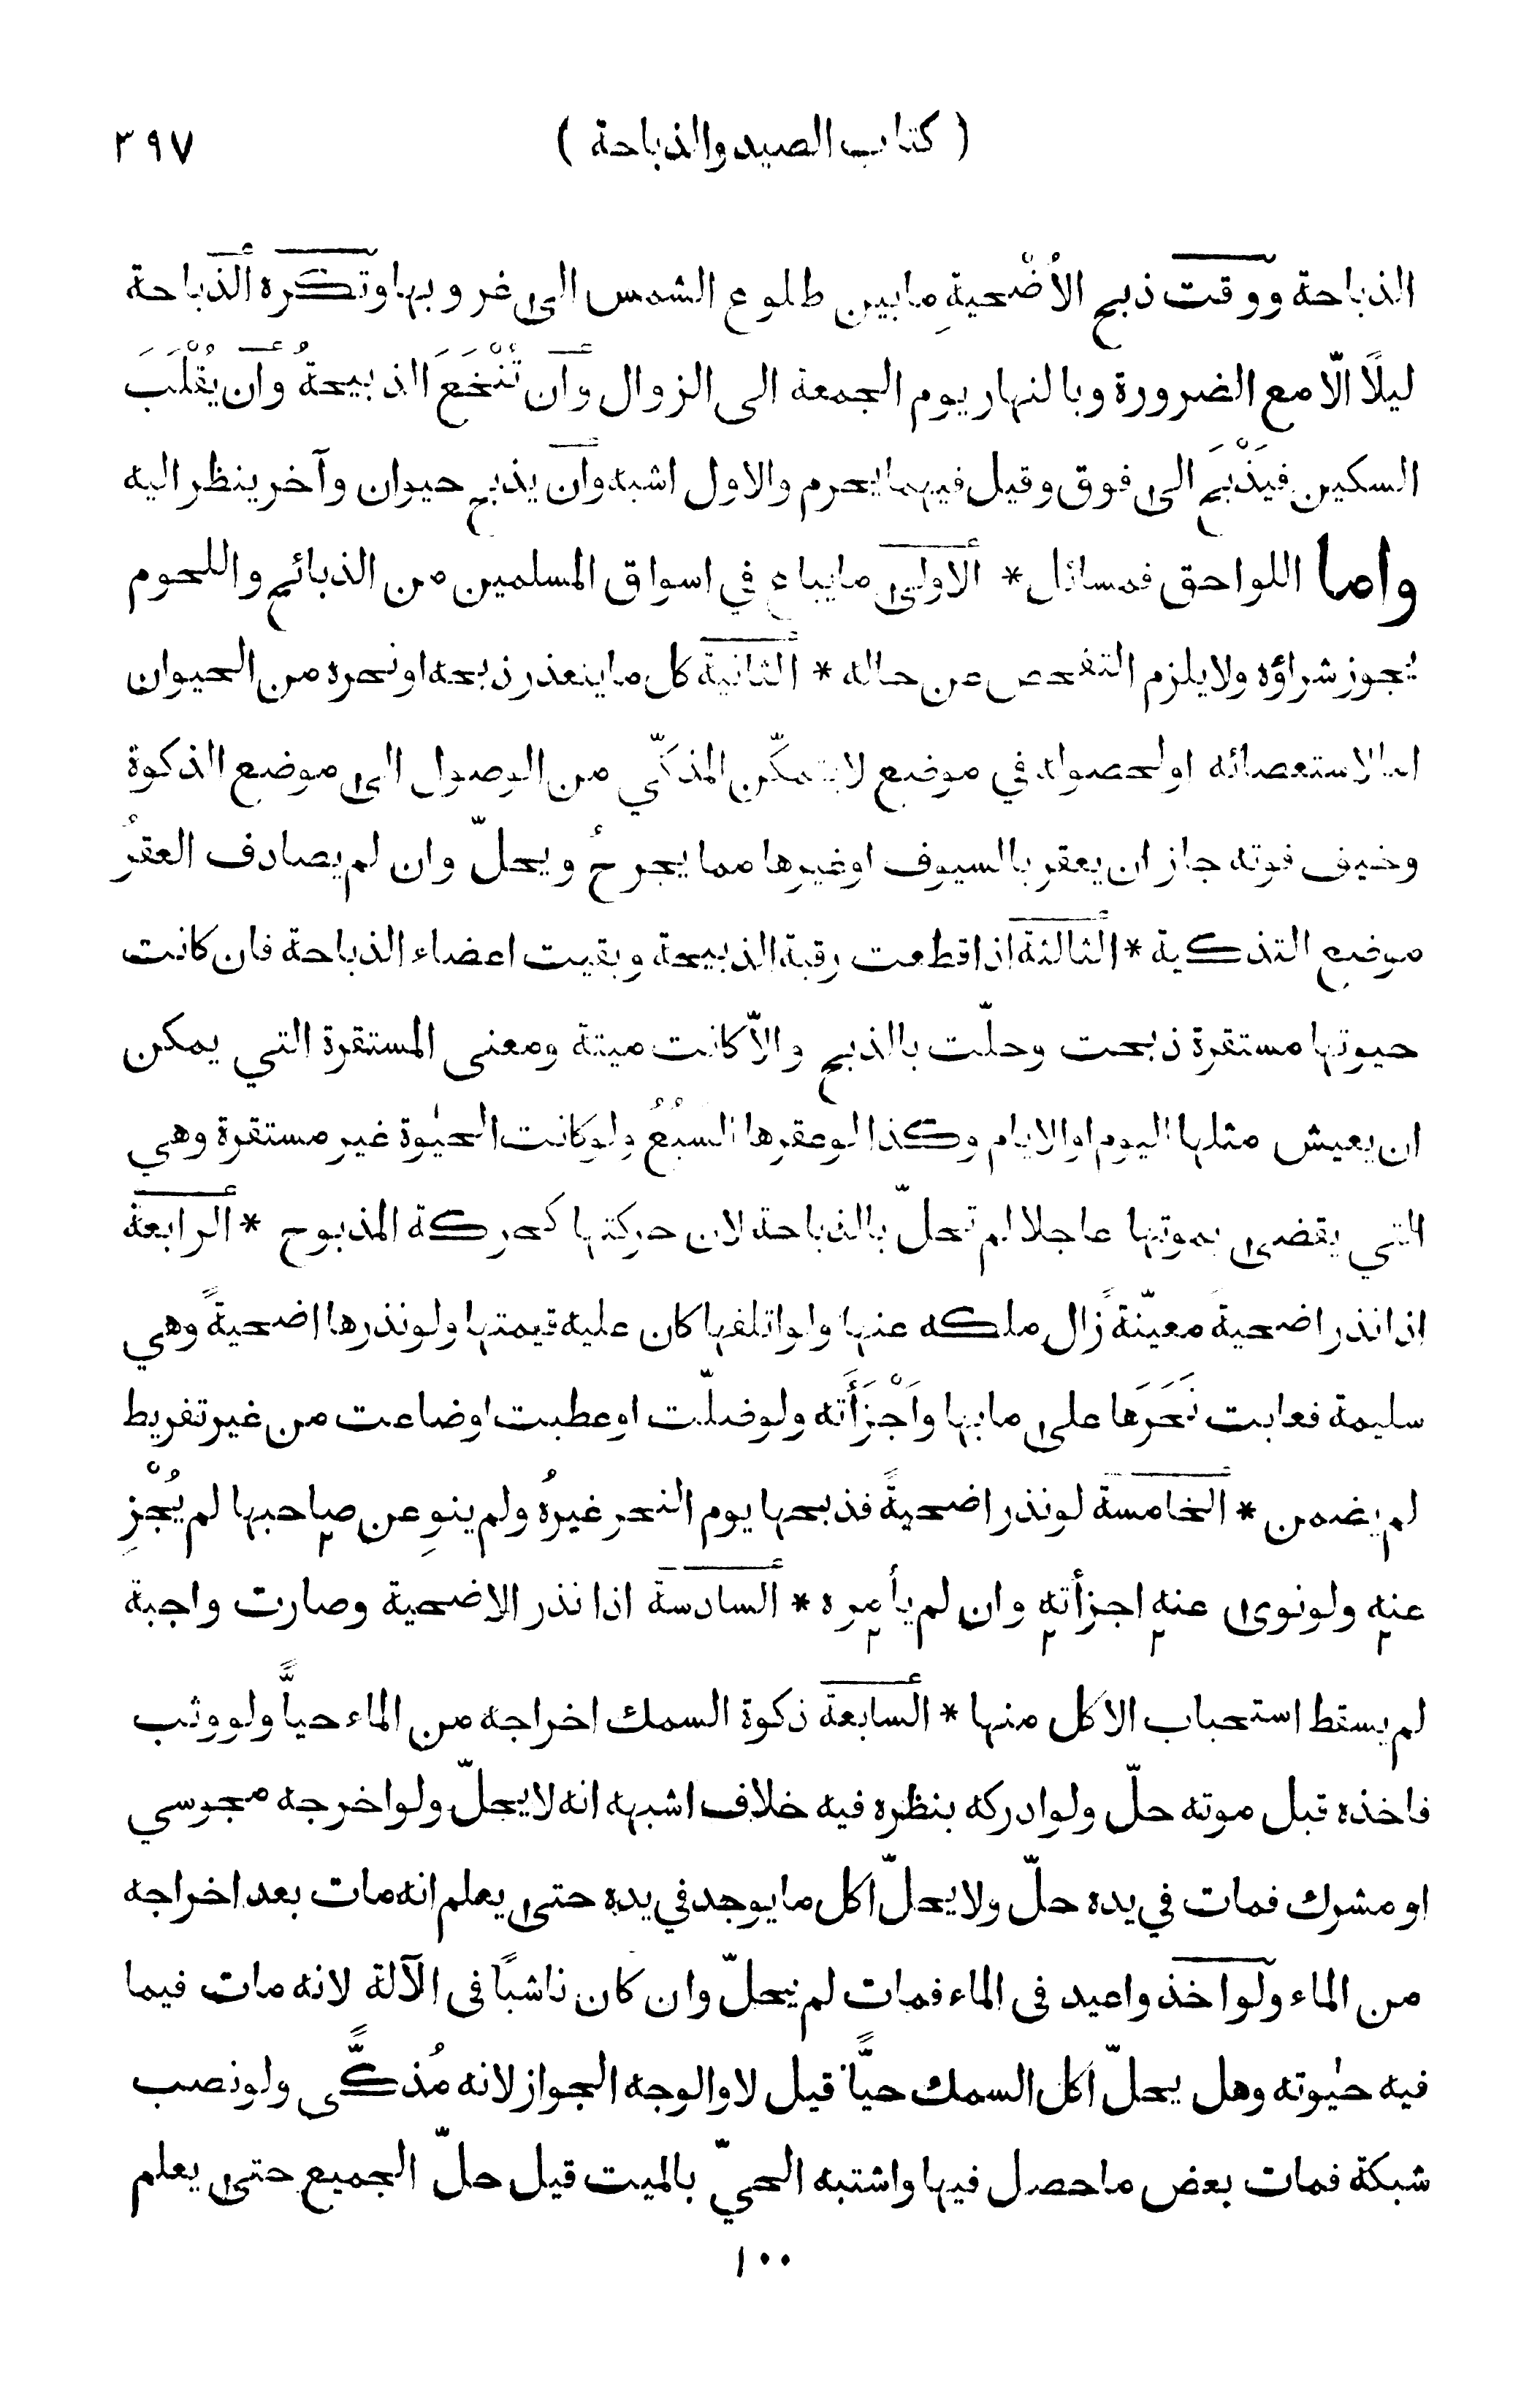 ( كتاب الصيد والذباحة ) ٣٩٧
الذباحة ووقت ذبح الأضْحيةِ ما بين طلوع الشمس الى غروبها وتكره الذباحة
ليلًا الّا مع الضرورة وبالنهار يوم الجمعة الى الزوال وان تُنْخَعَ الذبيحةُ وان يُقْلَبَ
السكين فيَذْبَح الى فوق وقيل فيهما يحرم والاول اشبه وان يذبح حيوان وآخر ينظر اليه
واما اللواحق فمسائل * الاولى ما يباع في اسواق المسلمين من الذبائح واللحوم
يجوز شراؤه ولا يلزم التفحص عن حاله * الثانية كل ما يتعذر ذبحه او نحره من الحيوان
اما لاستعصائه او لحصوله في موضع لا يتمكّن المذكّي من الوصول الى موضع الذكوة
وخيف فوته جاز ان يعقر بالسيوف او غيرها مما يجرحُ ويحلّ وان لم يصادف العقرُ
موضع التذكية * الثالثة اذا قطعت رقبة الذبيحة وبقيت اعضاء الذباحة فان كانت
حيوتها مستقرة ذبحت وحلّت بالذبح والّا كانت ميتة ومعنى المستقرة التي يمكن
ان يعيش مثلها اليوم او الايام وكذا لو عقرها السبُعُ ولو كانت الحيٰوة غير مستقرة وهي
التي يقضى بموتها عاجلا لم تحلّ بالذباحة لان حركتها كحركة المذبوح * الرابعة
اذا نذر اضحية معيّنةً زال ملكه عنها ولو اتلفها كان عليه قيمتها ولو نذرها اضحيةً وهي
سليمة فعابت نَحَرَها على ما بها وَاَجْزَأَته ولو ضلّت او عطبت او ضاعت من غير تفريط
لم يضمن * الخامسة لو نذر اضحيةً فذبحها يوم النحر غيرُه ولم ينوِ عن صاحبها لم يُجْزِ
عنه ولو نوى عنه اجزأته وان لم يأمره * السادسة اذا نذر الاضحية وصارت واجبة
لم يسقط استحباب الاكل منها * السابعة ذكوة السمك اخراجه من الماء حيًّا ولو وثب
فاخذه قبل موته حلّ ولو ادركه بنظره فيه خلاف اشبهه انه لا يحلّ ولو اخرجه مجوسي
او مشرك فمات في يده حلّ ولا يحلّ اكل ما يوجد في يده حتى يعلم انه مات بعد اخراجه
من الماء ولو اخذ واعيد فى الماء فمات لم يحلّ وان كان ناشبًا فى الآلة لانه مات فيما
فيه حيٰوته وهل يحلّ اكل السمك حيًّا قيل لا والوجه الجواز لانه مُذكًّى ولو نصب
شبكة فمات بعض ما حصل فيها واشتبه الحيّ بالميت قيل حلّ الجميع حتى يعلم
١٠٠